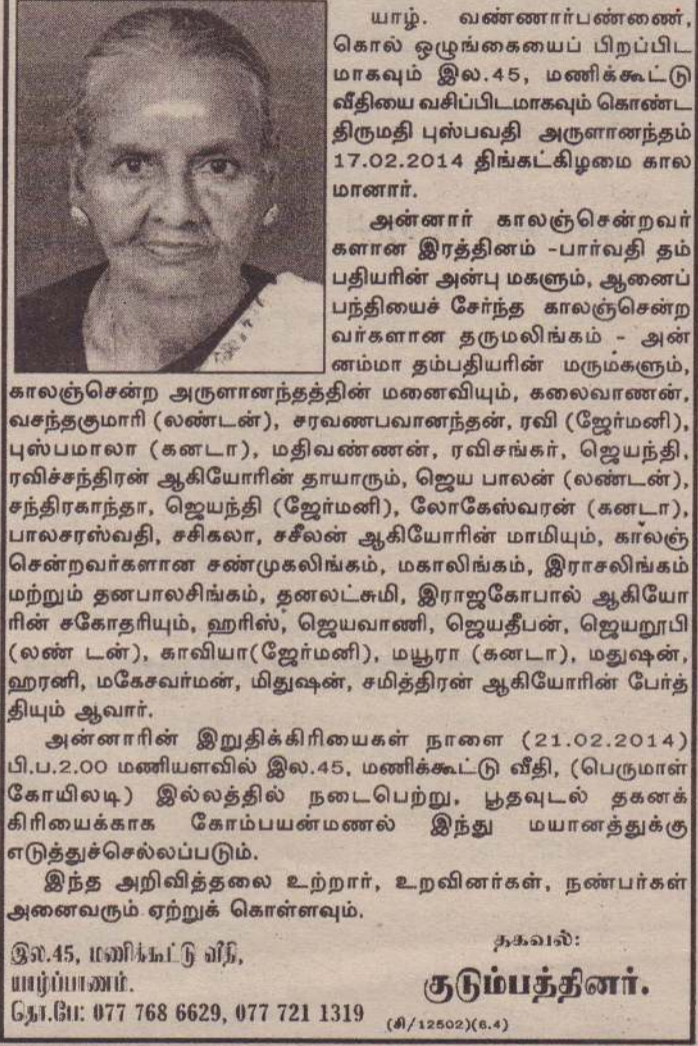 யாழ். வண்ணார்பண்ணை,
கொல் ஒழுங்கையைப் பிறப்பிட
மாகவும் இல.45, மணிக்கூட்டு
வீதியை வசிப்பிடமாகவும் கொண்ட
திருமதி புஸ்பவதி அருளானந்தம்
17.02.2014 திங்கட்கிழமை கால
மானார்.
அன்னார் காலஞ்சென்றவர்
களான இரத்தினம் -பார்வதி தம்
பதியரின் அன்பு மகளும், ஆனைப்
பந்தியைச் சேர்ந்த காலஞ்சென்ற
வர்களான தருமலிங்கம் - அன்
னம்மா தம்பதியரின் மரும்களும்,
காலஞ்சென்ற அருளானந்தத்தின் மனைவியும், கலைவாணன்,
வசந்தகுமாரி (லண்டன்), சரவணபவானந்தன், ரவி (ஜேர்மனி),
புஸ்பமாலா (கனடா), மதிவண்ணன், ரவிசங்கர், ஜெயந்தி,
ரவிச்சந்திரன் ஆகியோரின் தாயாரும், ஜெய பாலன் (லண்டன்),
சந்திரகாந்தா, ஜெயந்தி (ஜேர்மனி), லோகேஸ்வரன் (கனடா),
பாலசரஸ்வதி, சசிகலா, சசீலன் ஆகியோரின் மாமியும், காலஞ்
சென்றவர்களான சண்முகலிங்கம், மகாலிங்கம், இராசலிங்கம்
மற்றும் தனபாலசிங்கம், தனலட்சுமி, இராஜகோபால் ஆகியோ
ரின் சகோதரியும், ஹரிஸ், ஜெயவாணி, ஜெயதீபன், ஜெயரூபி
(லண் டன்), காவியா(ஜேர்மனி), மயூரா (கனடா), மதுஷன்,
ஹரனி, மகேசவர்மன், மிதுஷன், சமித்திரன் ஆகியோரின் பேர்த்
தியும் ஆவார்.
அன்னாரின் இறுதிக்கிரியைகள் நாளை (21.02.2014)
பி.ப.2.00 மணியளவில் இல.45, மணிக்கூட்டு வீதி, (பெருமாள்
கோயிலடி) இல்லத்தில் நடைபெற்று, பூதவுடல் தகனக்
கிரியைக்காக கோம்பயன்மணல் இந்து மயானத்துக்கு
எடுத்துச்செல்லப்படும்.
இந்த அறிவித்தலை உற்றார், உறவினர்கள், நண்பர்கள்
அனைவரும் ஏற்றுக் கொள்ளவும்.
இல.45, மணிக்கூட்டு வீதி,
யாழ்ப்பாணம்.
தொ.பே: 077 768 6629, 077 721 1319
தகவல்:
குடும்பத்தினர்.
(சி/12502)(6.4)